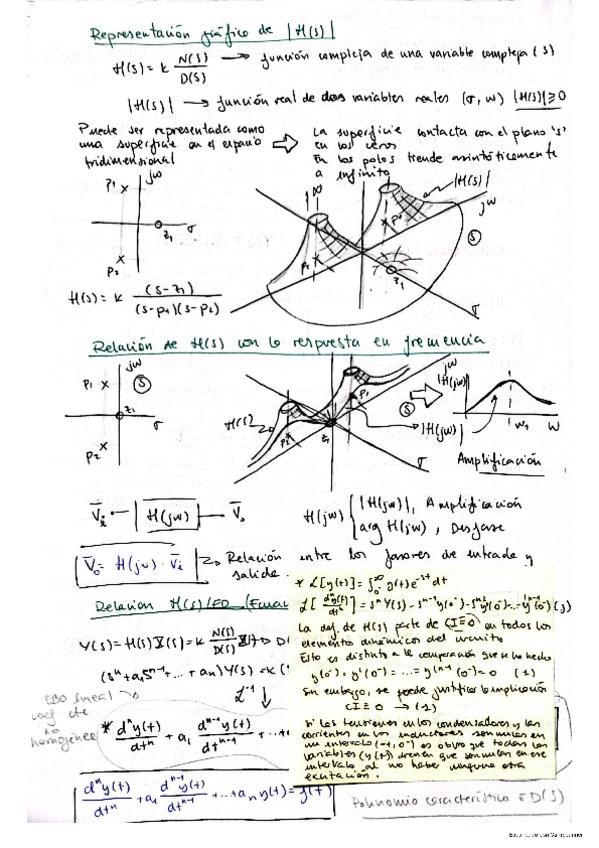 Representación gráfica de |H(s)|
H(s) = k N(s)/D(s) → función compleja de una variable compleja (s)
|H(s)| → función real de dos variables reales (σ, w) |H(s)| ≥ 0
Puede ser representada como
una superficie en el espacio
tridimensional
⇒ La superficie contacta con el plano 's'
en los ceros
En los polos tiende asintóticamente
a infinito
jw
P1
σ
z1
P2
∞
|H(s)|
jw
P1
S
z1
σ
H(s) = k (s-z1)/((s-p1)(s-p2))
Relación de H(s) con la respuesta en frecuencia
jw
P1
S
z1
σ
P2
jw
H(s)
P2
z1
P1
S
σ
|H(jw)|
|H(jw)|
w1
w
Amplificación
Vi — H(jw) — Vo
H(jw) { |H(jw)|, Amplificación
arg H(jw), Desfase
Vo = H(jw) · Vi → Relación entre los fasores de entrada y
salida.
Relación H(s)/ED
Y(s) = H(s) X(s) = k N(s)/D(s)
(sⁿ + a1 sⁿ⁻¹ + ... + an) Y(s) = k (
ℒ⁻¹
EDO lineal
coef cte
no
homogénea
* dⁿy(t)/dtⁿ + a1 dⁿ⁻¹y(t)/dtⁿ⁻¹ + ...
dⁿy(t)/dtⁿ + a1 dⁿ⁻¹y(t)/dtⁿ⁻¹ + ... + an y(t) = f(t)
Polinomio característico ≡ D(s)
* ℒ[y(t)] = ∫₀∞ y(t) e⁻ˢᵗ dt
ℒ[dⁿy(t)/dtⁿ] = sⁿ Y(s) - sⁿ⁻¹ y(0⁻) - sⁿ⁻² y'(0⁻) ... - yⁿ⁻¹(0⁻)
La def de H(s) parte de CI≡0 en todos los
elementos dinámicos del circuito
Esto es distinto a la comparación que se ha hecho
y(0⁻) = y'(0⁻) = ... = yⁿ⁻¹(0⁻) = 0 (1)
Sin embargo, se puede justificar la implicación
CI≡0 → (1)
Si las tensiones en los condensadores y las
corrientes en los inductores son nulas en
un intervalo (-t, 0⁻) es obvio que todas las
variables (y(t)) tienen que ser nulas en ese
intervalo al no haber ninguna otra
excitación.